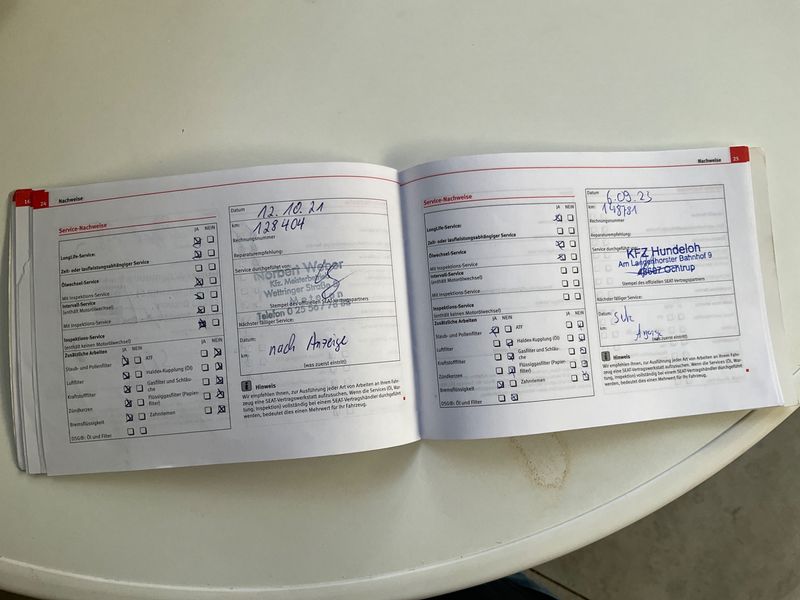 16
24
Nachweise
Service-Nachweise
JA NEIN
LongLife-Service:
Zeit- oder laufleistungsabhängiger Service
Ölwechsel-Service:
Mit Inspektions-Service
Intervall-Service
(enthält Motorölwechsel)
Mit Inspektions-Service
Inspektions-Service
(enthält keinen Motorölwechsel)
Zusätzliche Arbeiten JA NEIN JA NEIN
Staub- und Pollenfilter ATF
Luftfilter Haldex-Kupplung (Öl)
Kraftstofffilter Gasfilter und Schläuche
Zündkerzen Flüssiggasfilter (Papierfilter)
Bremsflüssigkeit Zahnriemen
DSG®: Öl und Filter
Datum 12.10.21
km: 128404
Rechnungsnummer
Reparaturempfehlung:
Service durchgeführt von:
Norbert Weber
Kfz. Meisterbetrieb
Wettringer Straße
Telefon 0 25 567
Stempel des offiziellen SEAT-Vertragspartners
Nächster fälliger Service:
Datum:
km: nach Anzeige
(was zuerst eintritt)
Hinweis
Wir empfehlen Ihnen, zur Ausführung jeder Art von Arbeiten an Ihrem Fahr-
zeug eine SEAT-Vertragswerkstatt aufzusuchen. Wenn die Services (Öl, War-
tung, Inspektion) vollständig bei einem SEAT-Vertragshändler durchgeführt
werden, bedeutet dies einen Mehrwert für Ihr Fahrzeug.
Nachweise
25
Service-Nachweise
JA NEIN
LongLife-Service:
Zeit- oder laufleistungsabhängiger Service
Ölwechsel-Service:
Mit Inspektions-Service
Intervall-Service
(enthält Motorölwechsel)
Mit Inspektions-Service
Inspektions-Service
(enthält keinen Motorölwechsel)
Zusätzliche Arbeiten JA NEIN JA NEIN
Staub- und Pollenfilter ATF
Luftfilter Haldex-Kupplung (Öl)
Kraftstofffilter Gasfilter und Schläuche
Zündkerzen Flüssiggasfilter (Papierfilter)
Bremsflüssigkeit Zahnriemen
DSG®: Öl und Filter
Datum 6.09.23
km: 148781
Rechnungsnummer
Reparaturempfehlung:
Service durchgeführt von:
KFZ Hundeloh
Am Langenhorster Bahnhof 9
48607 Ochtrup
Stempel des offiziellen SEAT-Vertragspartners
Nächster fälliger Service:
Datum:
km: Anzeige
(was zuerst eintritt)
Hinweis
Wir empfehlen Ihnen, zur Ausführung jeder Art von Arbeiten an Ihrem Fahr-
zeug eine SEAT-Vertragswerkstatt aufzusuchen. Wenn die Services (Öl, War-
tung, Inspektion) vollständig bei einem SEAT-Vertragshändler durchgeführt
werden, bedeutet dies einen Mehrwert für Ihr Fahrzeug.